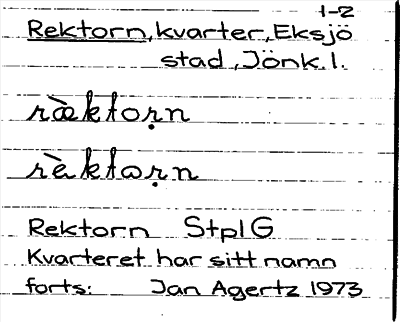 1-2
Rektorn, kvarter, Eksjö
stad, Jönk. l.
ræ̀ktọrn
rèktọrn
Rektorn StplG
Kvarteret har sitt namn
forts: Jan Agertz 1973